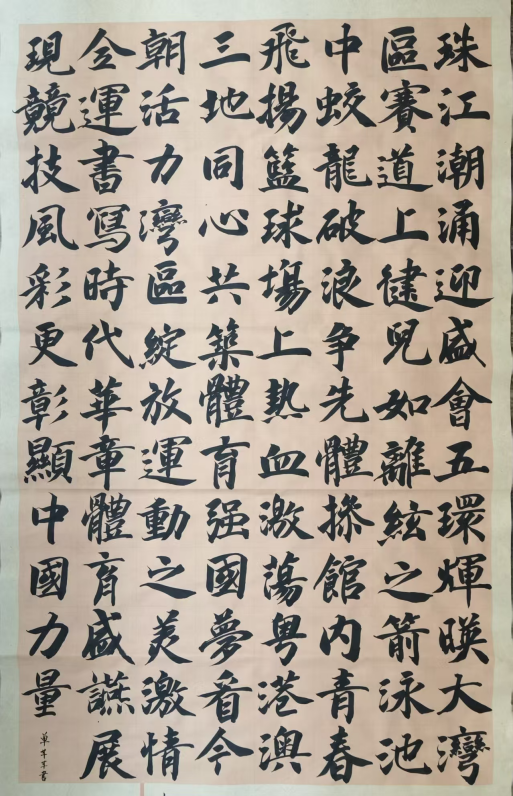 珠江潮涌迎盛會五環輝暎大灣
區賽道上健兒如離絃之箭泳池
中蛟龍破浪争先體操館内青春
飛揚籃球塲上热血激蕩粤港澳
三地同心共築體育强國夢看今
朝活力灣區綻放運動之美激情
全運書寫時代華章體育盛讌展
現競技風彩更彰顯中國力量